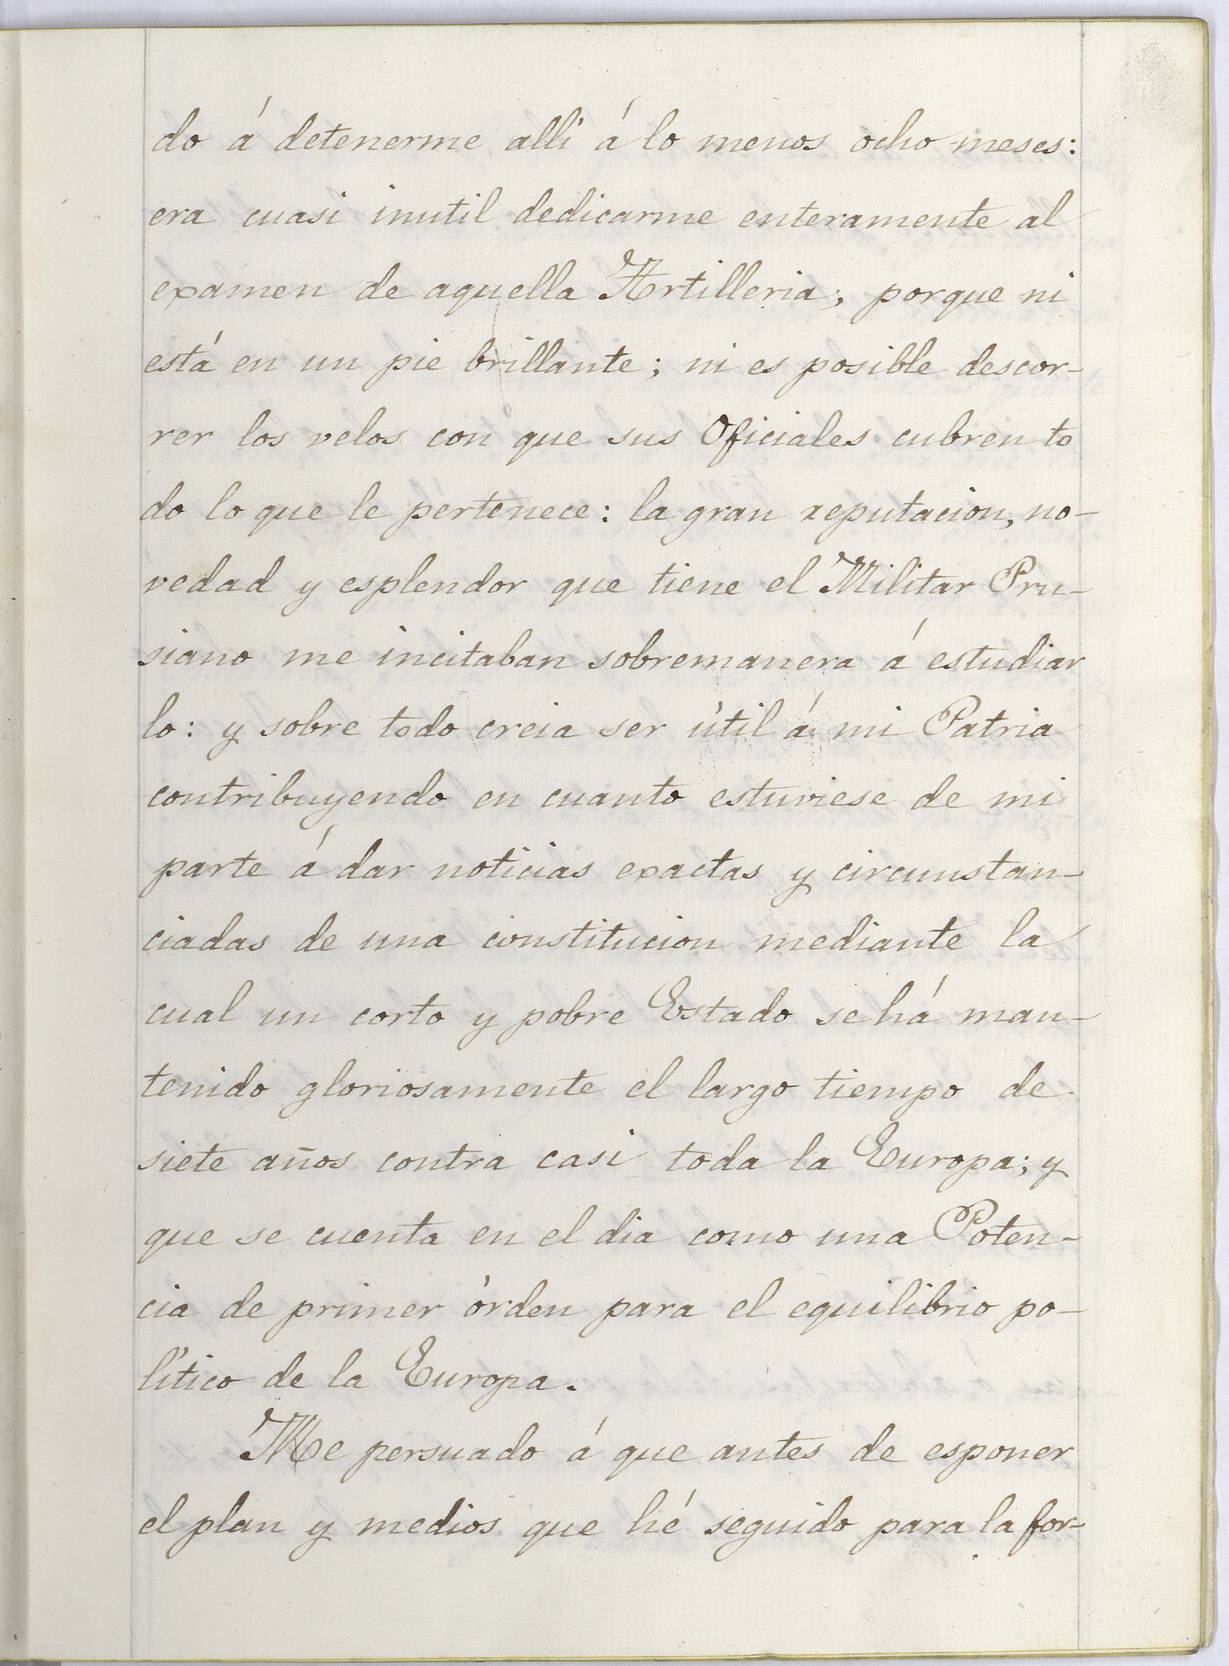 do á detenerme alli á lo menos ocho meses:
era cuasi inutil dedicarme enteramente al
examen de aquella Artilleria, porque ni
está en un pie brillante; ni es posible descor-
rer los velos con que sus Oficiales cubren to
do lo que le pertenece: la gran reputacion, no-
vedad y esplendor que tiene el Militar Pru-
siano me incitaban sobremanera á estudiar
lo: y sobre todo creia ser útil á mi Patria
contribuyendo en cuanto estuviese de mi
parte á dar noticias exactas y circunstan-
ciadas de una constitucion mediante la
cual un corto y pobre Estado se há man-
tenido gloriosamente el largo tiempo de
siete años contra casi toda la Europa; y
que se cuenta en el dia como una Poten-
cia de primer órden para el equilibrio po-
lítico de la Europa.
Me persuado á que antes de esponer
el plan y medios que hé seguido para la for-